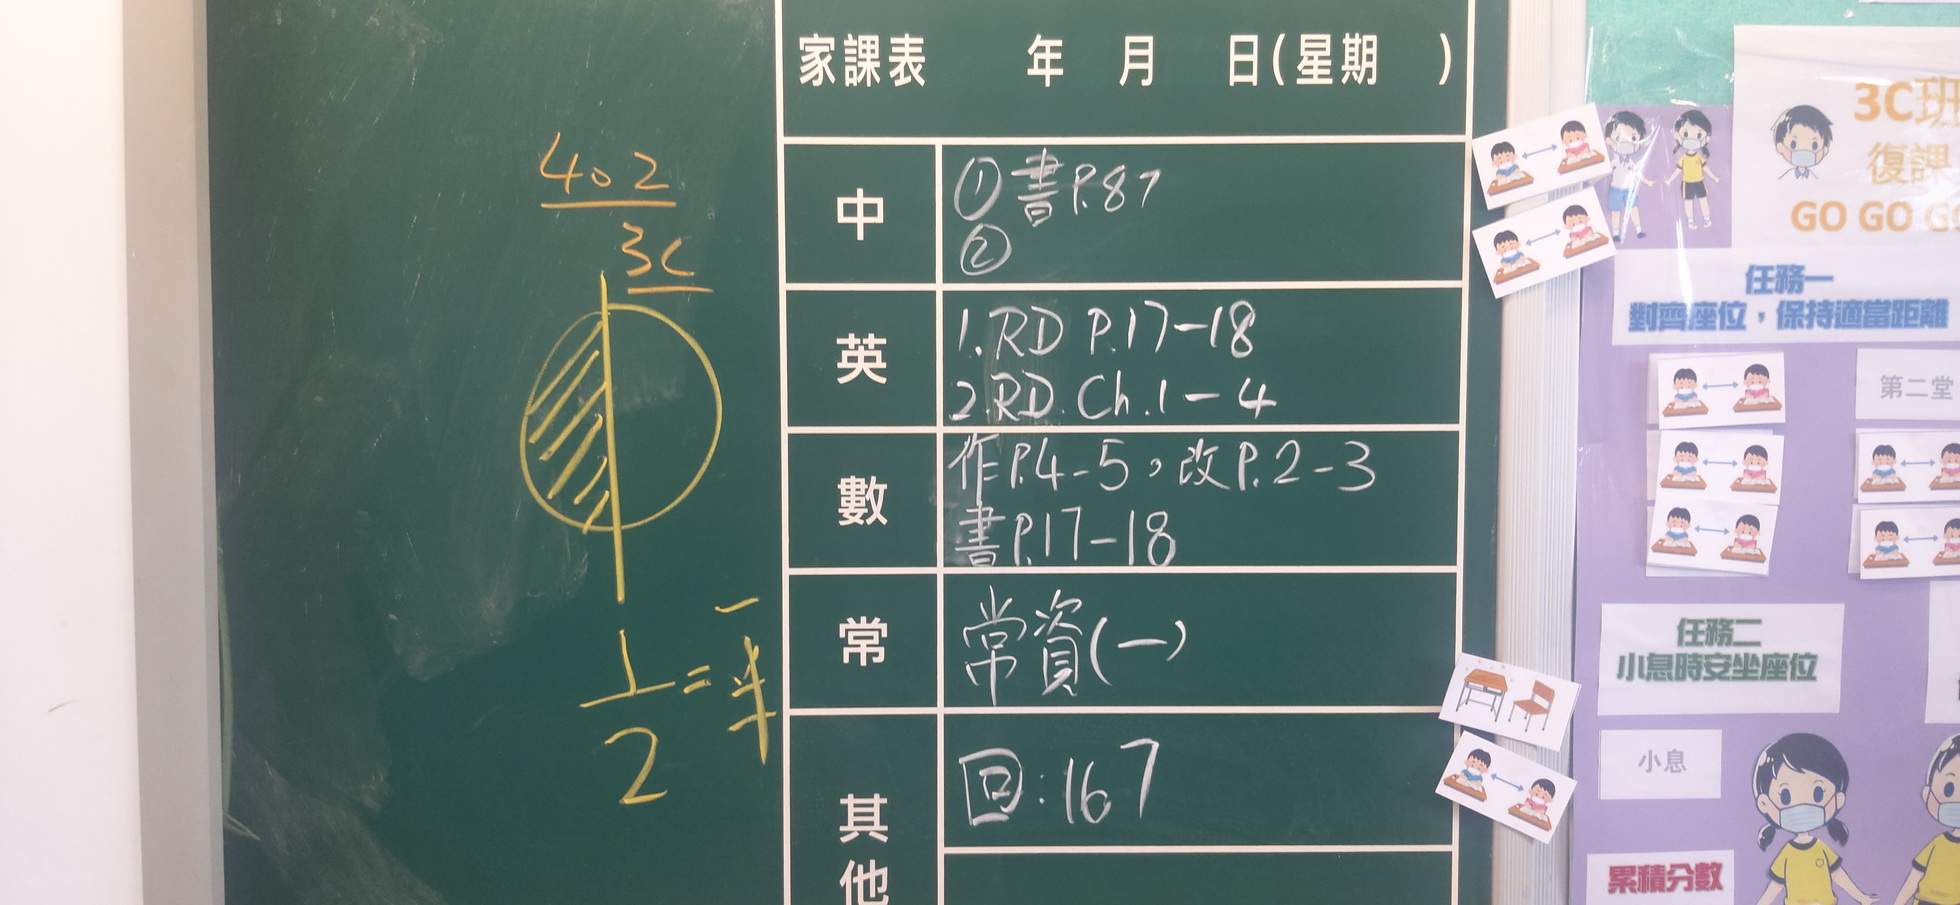 402
3C
1/2 = 一半
家課表 年 月 日(星期 )
中
① 書P.87
②
英
1.RD P.17-18
2.RD. Ch.1-4
數
作P.4-5，改P.2-3
書P.17-18
常
常資(一)
其他
回:167
3C班
復課
GO GO
任務一
對齊座位，保持適當距離
第二堂
任務二
小息時安坐座位
小息
累積分數